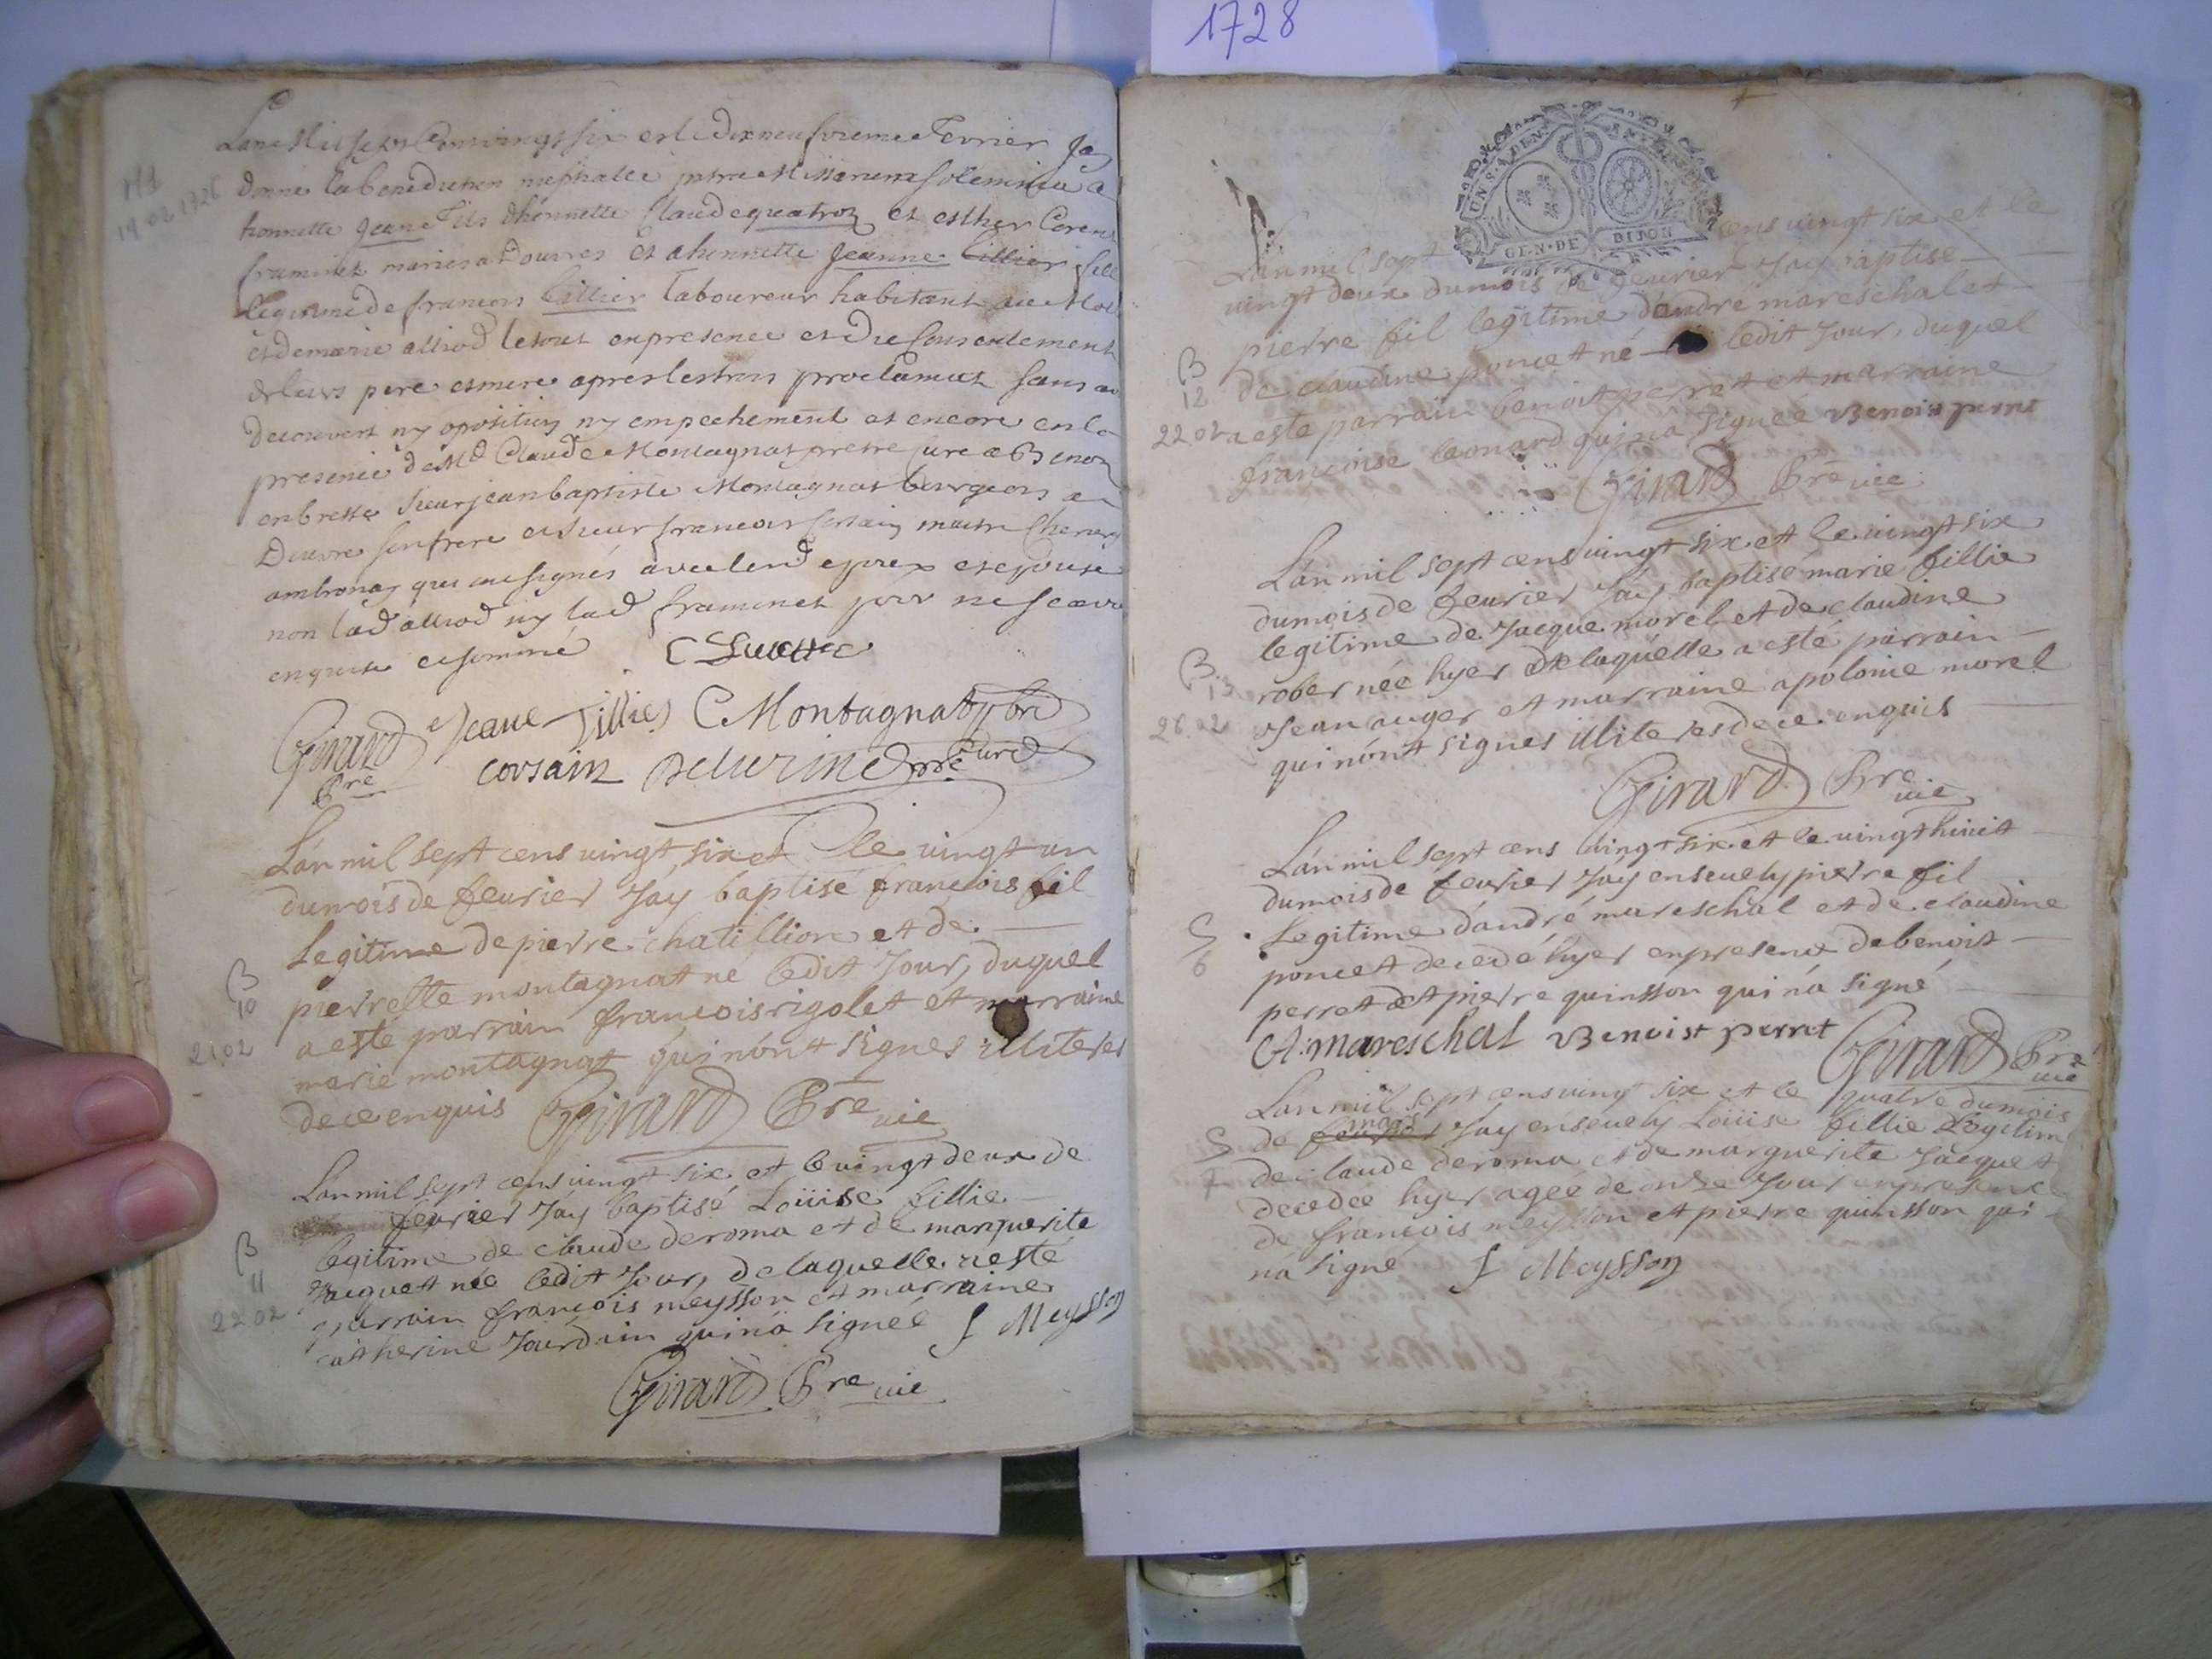 1728
Lan Mil sept Cent vingt six et le Dixneufvieme Fevrier Jay
donné la benediction nuptialle intra Missarum solemnia a
honnette Jean Fils dhonnette Claude quatroz et esther
framinet mariés a Douvres et a honnette Jeanne tillier fille
legitime de francois tillier laboureur habitant
et de marie alliod le tout en presence et du Consentement
de leurs pere et mere apres les trois proclamats sans avoir
decouvert ny oposition ny empechement et encore en la
presence de Mr Claude Montagnat prestre curé
en bresse sieur jean baptiste Montagnat bourgeois
Douvre son frere et sieur francois corsain maitre
ambronay qui ont signés avec lesd epoux et epouse
non lad alliod ny lad framinet pour ne scavoir
enquise et sommé
Girard Jeane Tillier C Montagnat
Pre corsain pbre curé
M3
19 02 1726
L'an mil sept cens vingt six et le vingt un
du mois de feurier J'ay baptisé françois fil
legitime de pierre chatillion et de
pierrette montagnat né ledit Jour, duquel
a esté parrain françois rigolet et marraine
marie montagnat qui n'ont signes illiteres
de ce enquis Girard Pre vic
B
10
21.02
L'an mil sept cens vingt six et le vingt deux de
feurier J'ay baptisé Loüise fillie
legitime de claude deroma et de marguerite
Jacquet née ledit Jour, de laquelle a esté
parrain françois meysson et marraine
catherine Jourdain qui n'a signée f Meysson
Girard Pre vic
B
11
22.02
UN S. 4 DEN.
GEN. DE DIJON
L'an mil sept cens vingt six et le
vingt deux du mois de feurier J'ay baptise
pierre fil legitime d'andré mareschal et
de claudine poncet né ledit Jour, duquel
a esté parrain benoit perret et marraine
françoise leonard qui n'a signée Benoist perret
Girard Pre vic
B
12
22.02
L'an mil sept cens vingt six et le vingt six
du mois de feurier J'ay baptisé marie fillie
legitime de Jacque morel et de claudine
rober née hyer de laquelle a esté parrain
Jean auger et marraine apolonie morel
qui n'ont signes illiteres de ce enquis
Girard Pre vic
B
13
26.02
L'an mil sept cens vingt six et le vingt huict
du mois de feurier J'ay enseuely pierre fil
legitime d'andré mareschal et de claudine
poncet decedé hyer en presence de benoist
perret et pierre quinsson qui n'a signé
A. mareschal Benoist perret Girard Pre vic
S
6
L'an mil sept cens vingt six et le quatre du mois
de feurier mars J'ay enseuely Loüise fillie legitime
de claude deroma et de marguerite Jacquet
decedée hyer agée de onze Jour en presence
de françois meysson et pierre quinsson qui
n'a signé f Meysson
S
7